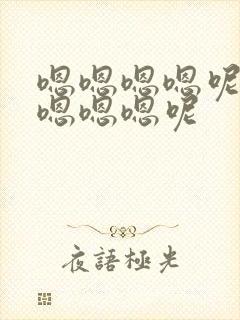 嗯嗯嗯嗯呢
嗯嗯嗯呢
夜語極光